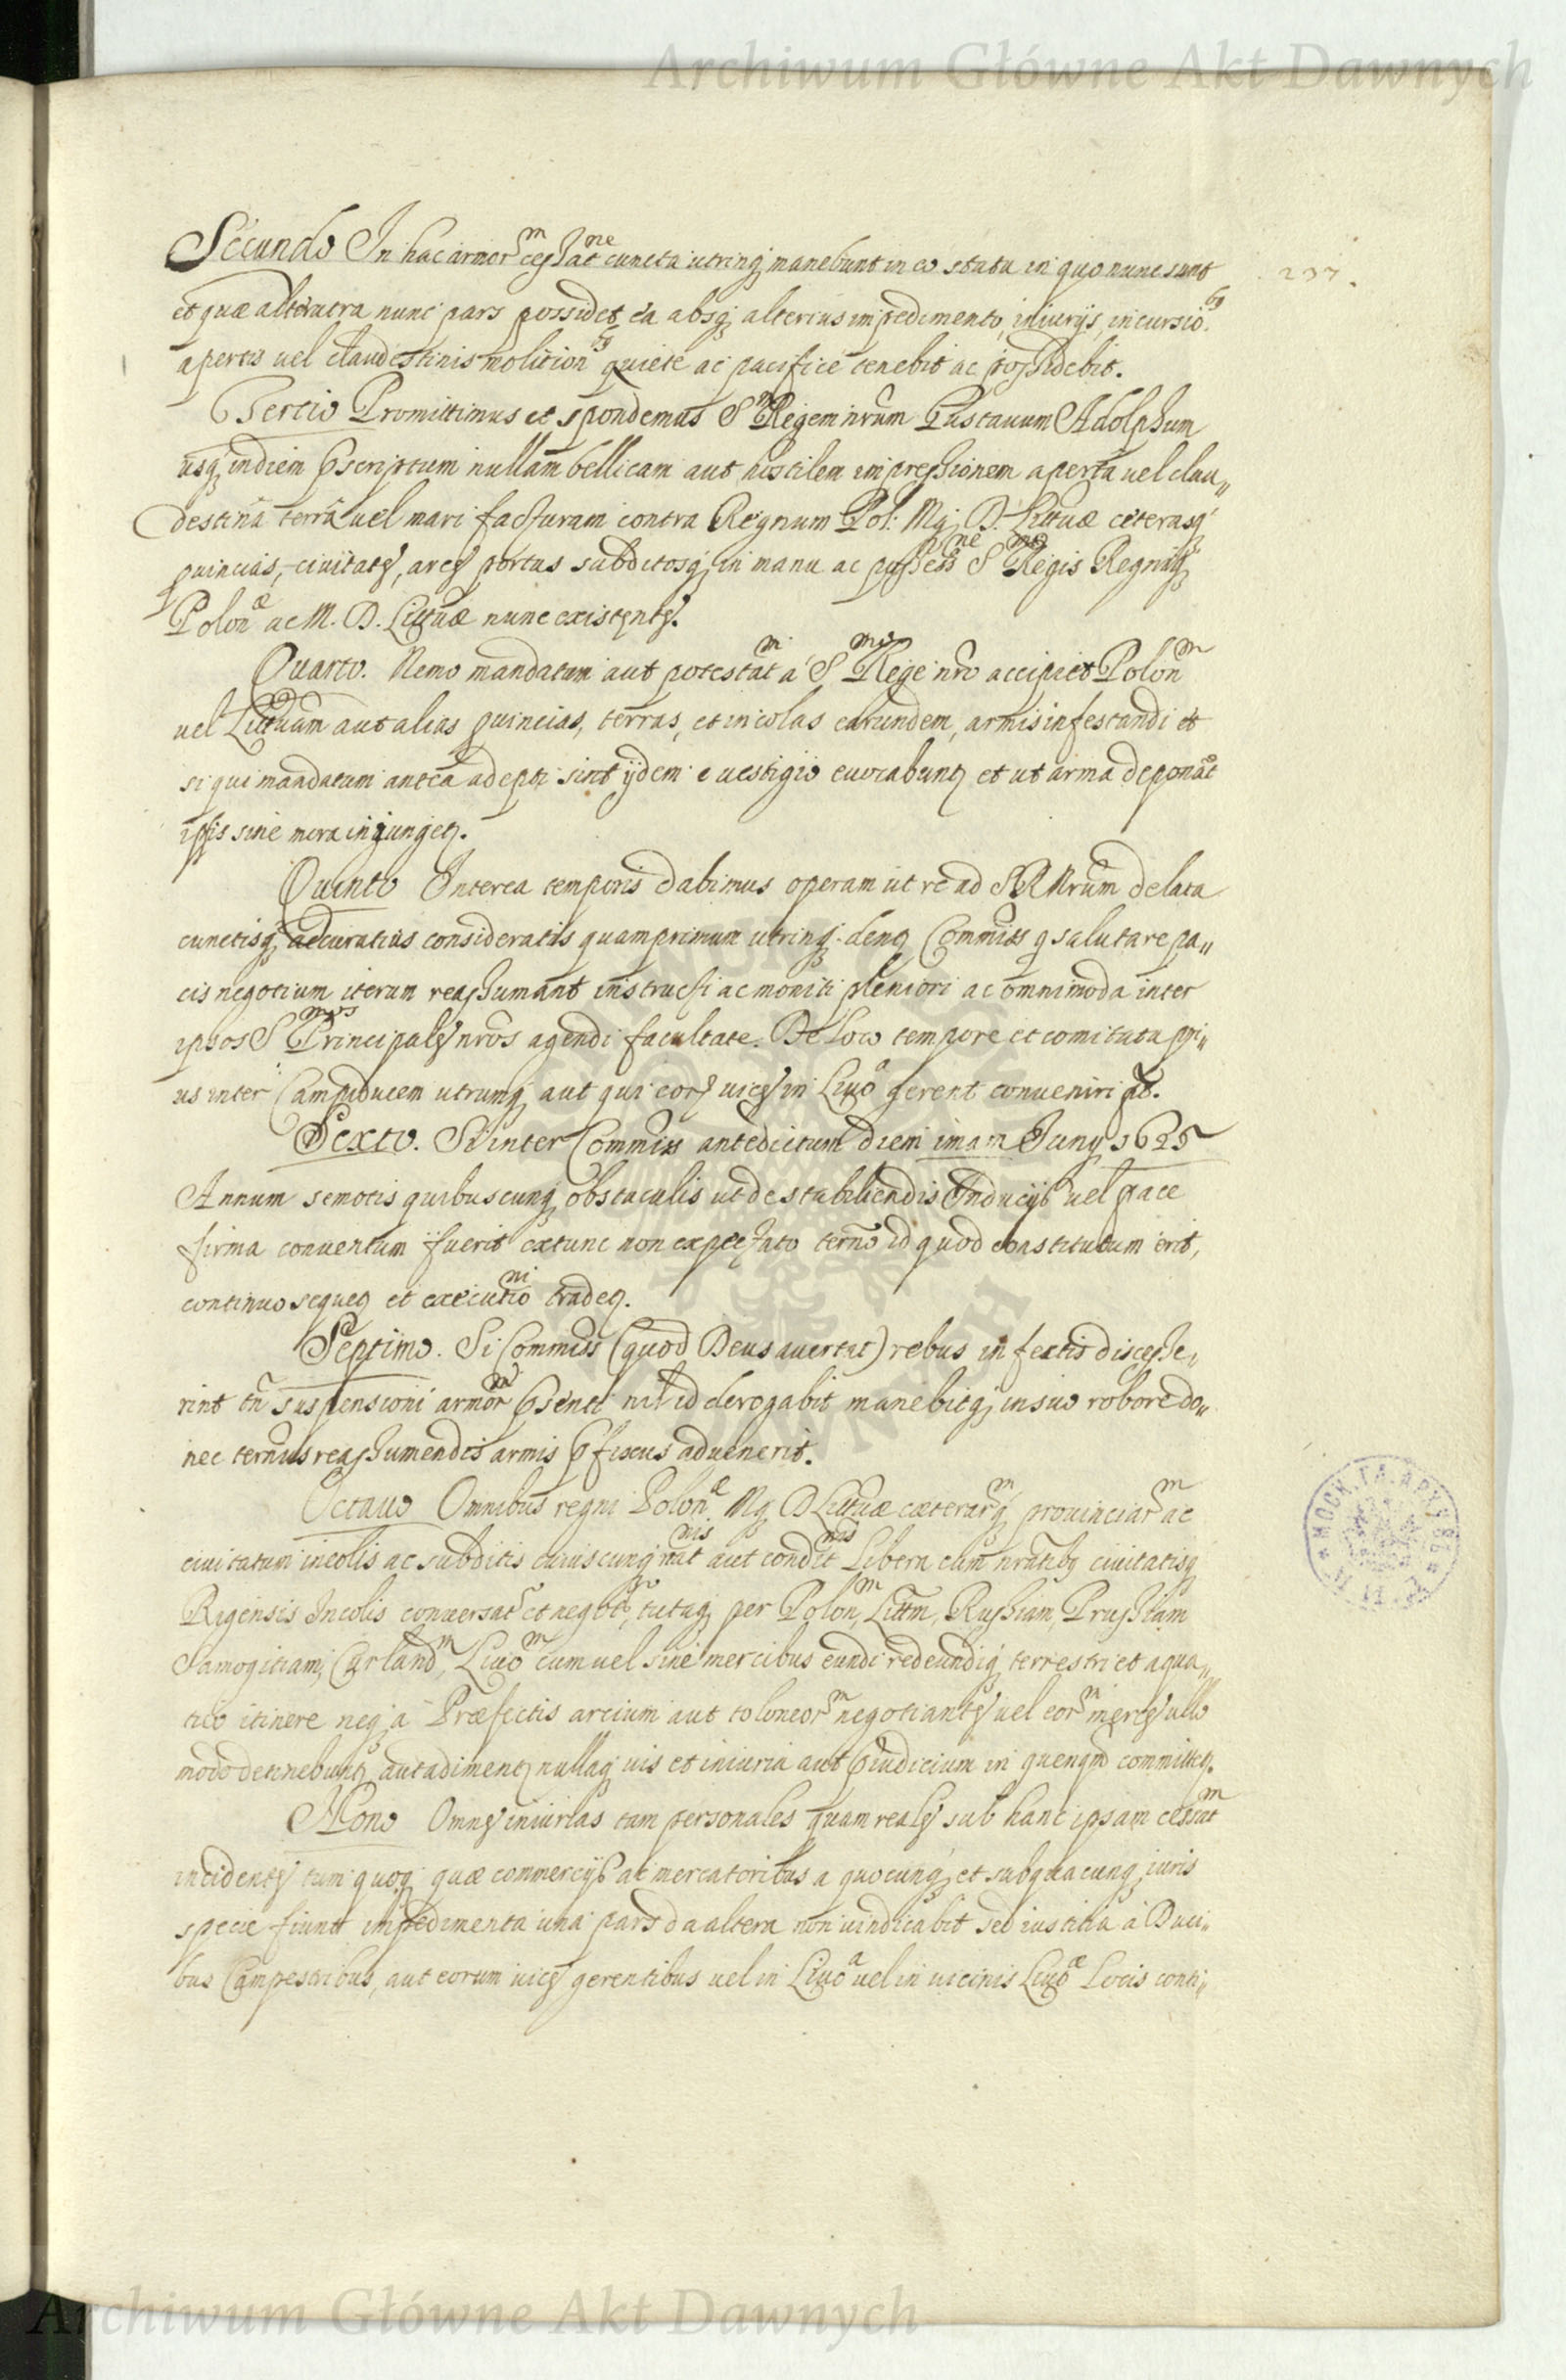 Archiwum Główne Akt Dawnych
237.
Secundo In hac armor^m cessat^ne cuncta utrinq manebunt in eo statu in quo nunc sunt
et quæ alterutra nunc pars possidet ea absq alterius impedimento, iniurijs, incursio^bq
apertis uel clandestinis molition^bq quiete ac pacifice tenebit ac possidebit.
Tertio Promittimus et spondemus S^m Regem nrum Gustauum Adolphum
usq in diem pscriptum nullam bellicam aut hostilem impressionem aperta uel clan„
destina terra uel mari facturam contra Regnum Pol: Mq D. Littuæ ceterasq
puincias, ciuitates, arces portus subditosq in manu ac possess^ne S^mi Regis Regniq
Polon^æ ac M. D. Littuæ nunc existentes.
Quarto. Nemo mandatum aut potestat^m a S^mo Rege nro accipiet Polon^m
uel Littuam aut alias puincias, terras, et incolas earundem, armis infestandi et
si qui mandatum antea adepti sint ijdem e uestigio euocabunt et ut arma deponat
ipsis sine mora injunget.
Quinto Interea temporis dabimus operam ut re ad SRM nrum delata
cunctisq accuratius consideratis quamprimum utrinq dent Commiss q salutare pa„
cis negotium iterum reassumant instructi ac moniti pleniori ac omnimoda inter
ipsos S^mos Principales nros agendi facultate. De loco tempore et comitatu pri„
us inter Campiducem utrumq aut qui eor uices in Liuo^a gerent conueniri pt.
Sexto. Si inter Commiss antedictum diem imam Juny 1625
Annum semotis quibuscunq obstaculis ut de stabiliendis Inducijs uel pace
firma conuentum fuerit extunc non expectato termo id quod constitutum erit,
continuo sequet et executio^ni tradet.
Septimo. Si Commiss (quod Deus auertat) rebus infectis discesse„
rint tn suspensioni armor^m psenti nil id derogabit manebitq in suo robore do„
nec terminus reassumendis armis pfixus aduenerit.
Octauo Omnibus regni Polon^æ Mq D Littuæ cæterar^mq prouinciar^m ac
ciuitatum incolis ac subditis cuiuscunq nat^nis aut condit^nis Libera cum nratibq ciuitatisq
Rigensis Incolis conuersat^o et negot^o, tutaq per Polon^m, Littm, Russiam, Prussiam
Samogitiam, Curland^m, Liuo^m cum uel sine mercibus eundi redeundiq terrestri et aqua„
tico itinere neq a Præfectis arcium aut toloneor^m negotiantes uel eor^m merces ullo
modo detinebunt aut adiment nullaq uis et iniuria aut piudicium in quenqm committet.
Nono Omnes iniurias tam personales quam reales sub hanc ipsam cessat^m
incidentes tum quoq quæ commercijs ac mercatoribus a quocunq et sub quacunq iuris
specie fiunt impedimenta una pars da altera non uindicabit sed iustitia a Duci„
bus Campestribus, aut eorum uices gerentibus uel in Liuo^a uel in uicinis Liuo^æ Locis conti„
Archiwum Główne Akt Dawnych